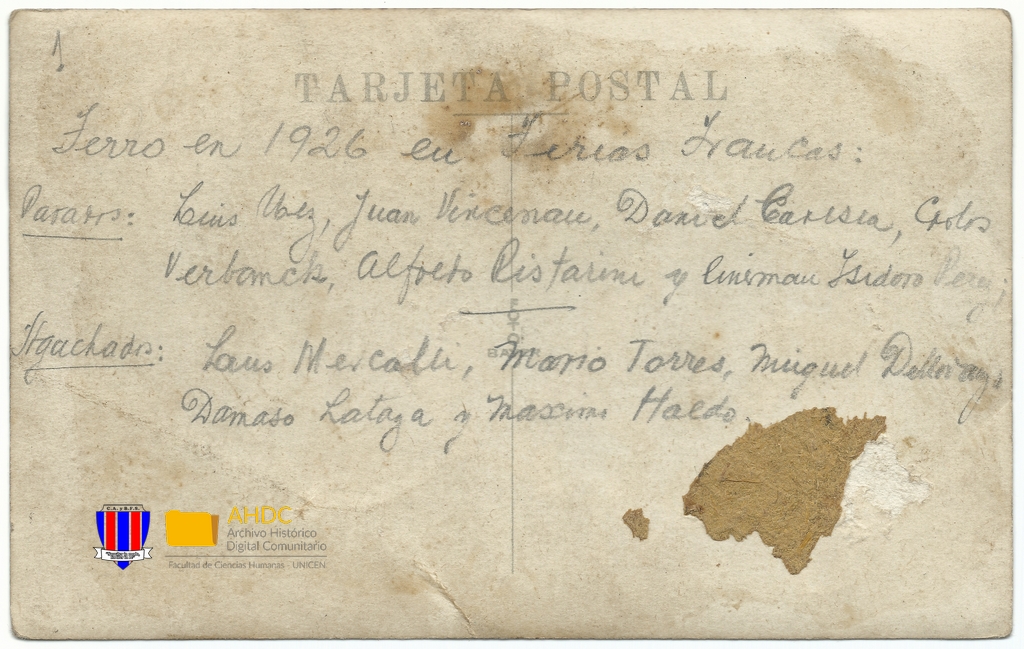 1
TARJETA POSTAL
Ferro en 1926 en Ferias Francas:
Parados: Luis Juan Vincenau, Daniel Caresia, Carlos
Verbanck, Alfredo Pistarini y linesman Isidoro Perez,
FOTO
BA
Agachados: Luis Mercalli, Mario Torres, Miguel
Damaso Lataza y Maximo Haedo.
C.A. y B.F.S.
AHDC
Archivo Histórico
Digital Comunitario
Facultad de Ciencias Humanas - UNICEN